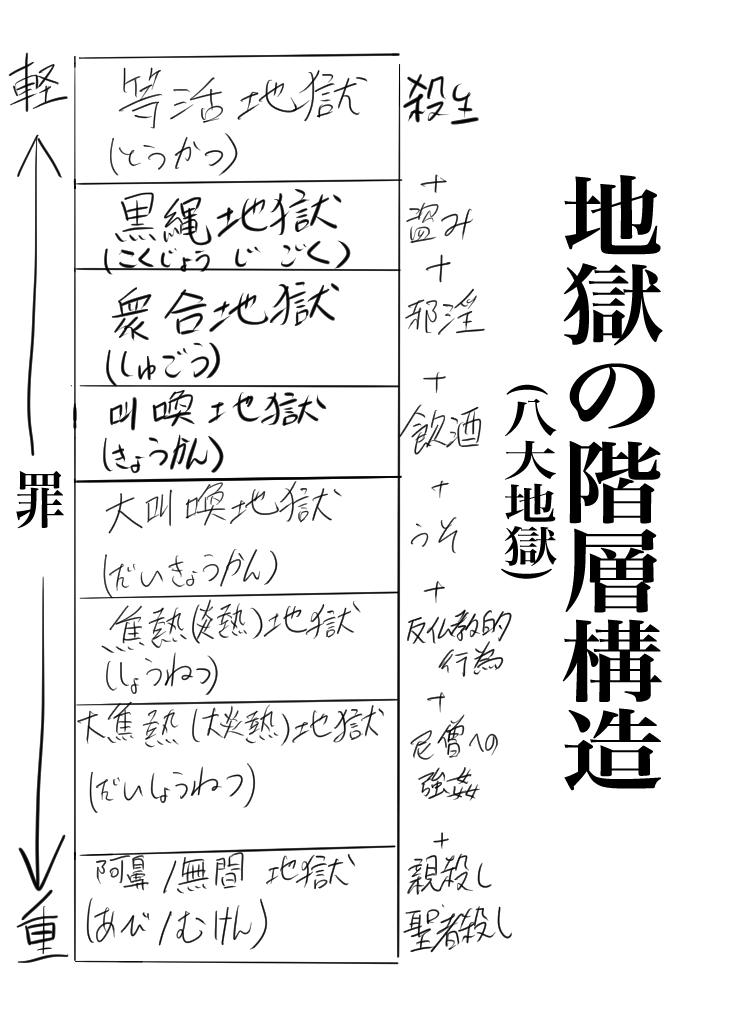 地獄の階層構造
(八大地獄)
軽
罪
重
等活地獄
(とうかつ)
殺生
+
黒縄地獄
(こくじょう じ ごく)
盗み
+
衆合地獄
(しゅごう)
邪淫
+
叫喚地獄
(きょうかん)
飲酒
+
大叫喚地獄
(だいきょうかん)
うそ
+
焦熱(炎熱)地獄
(しょうねつ)
反仏教的
行為
+
大焦熱(大炎熱)地獄
(だいしょうねつ)
尼僧への
強姦
+
阿鼻/無間 地獄
(あび/むけん)
親殺し
聖者殺し